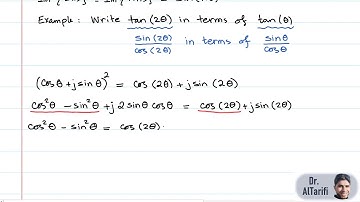 Example: Write tan(2θ) in terms of tan(θ)
sin(2θ)/cos(2θ) in terms of sinθ/cosθ
(cosθ + j sinθ)² = cos(2θ) + j sin(2θ)
cos²θ − sin²θ + j 2 sinθ cosθ = cos(2θ) + j sin(2θ)
cos²θ − sin²θ = cos(2θ)
Dr.
AlTarifi